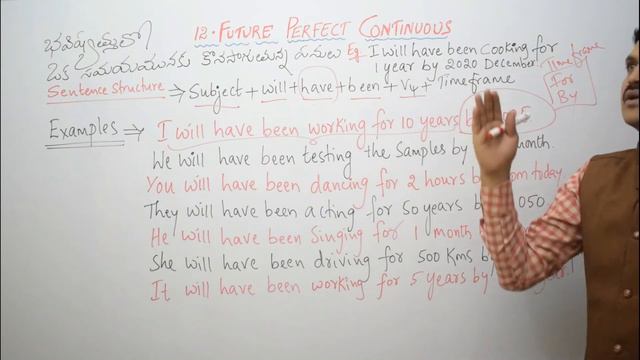 12. FUTURE PERFECT CONTINUOUS
భవిష్యత్తులో
ఒక సమయమునకు కొనసాగుతున్న పనులు Eg. I will have been Cooking for
1 year by 2020 December.
Sentence structure → Subject + will + have + been + V4 + Timeframe
Time frame
For
By
Examples ⇒ I will have been working for 10 years
We will have been testing the Samples by month.
You will have been dancing for 2 hours by today
They will have been acting for 50 years
He will have been Singing for 1 month
She will have been driving for 500 Kms by
It will have been working for 5 years by